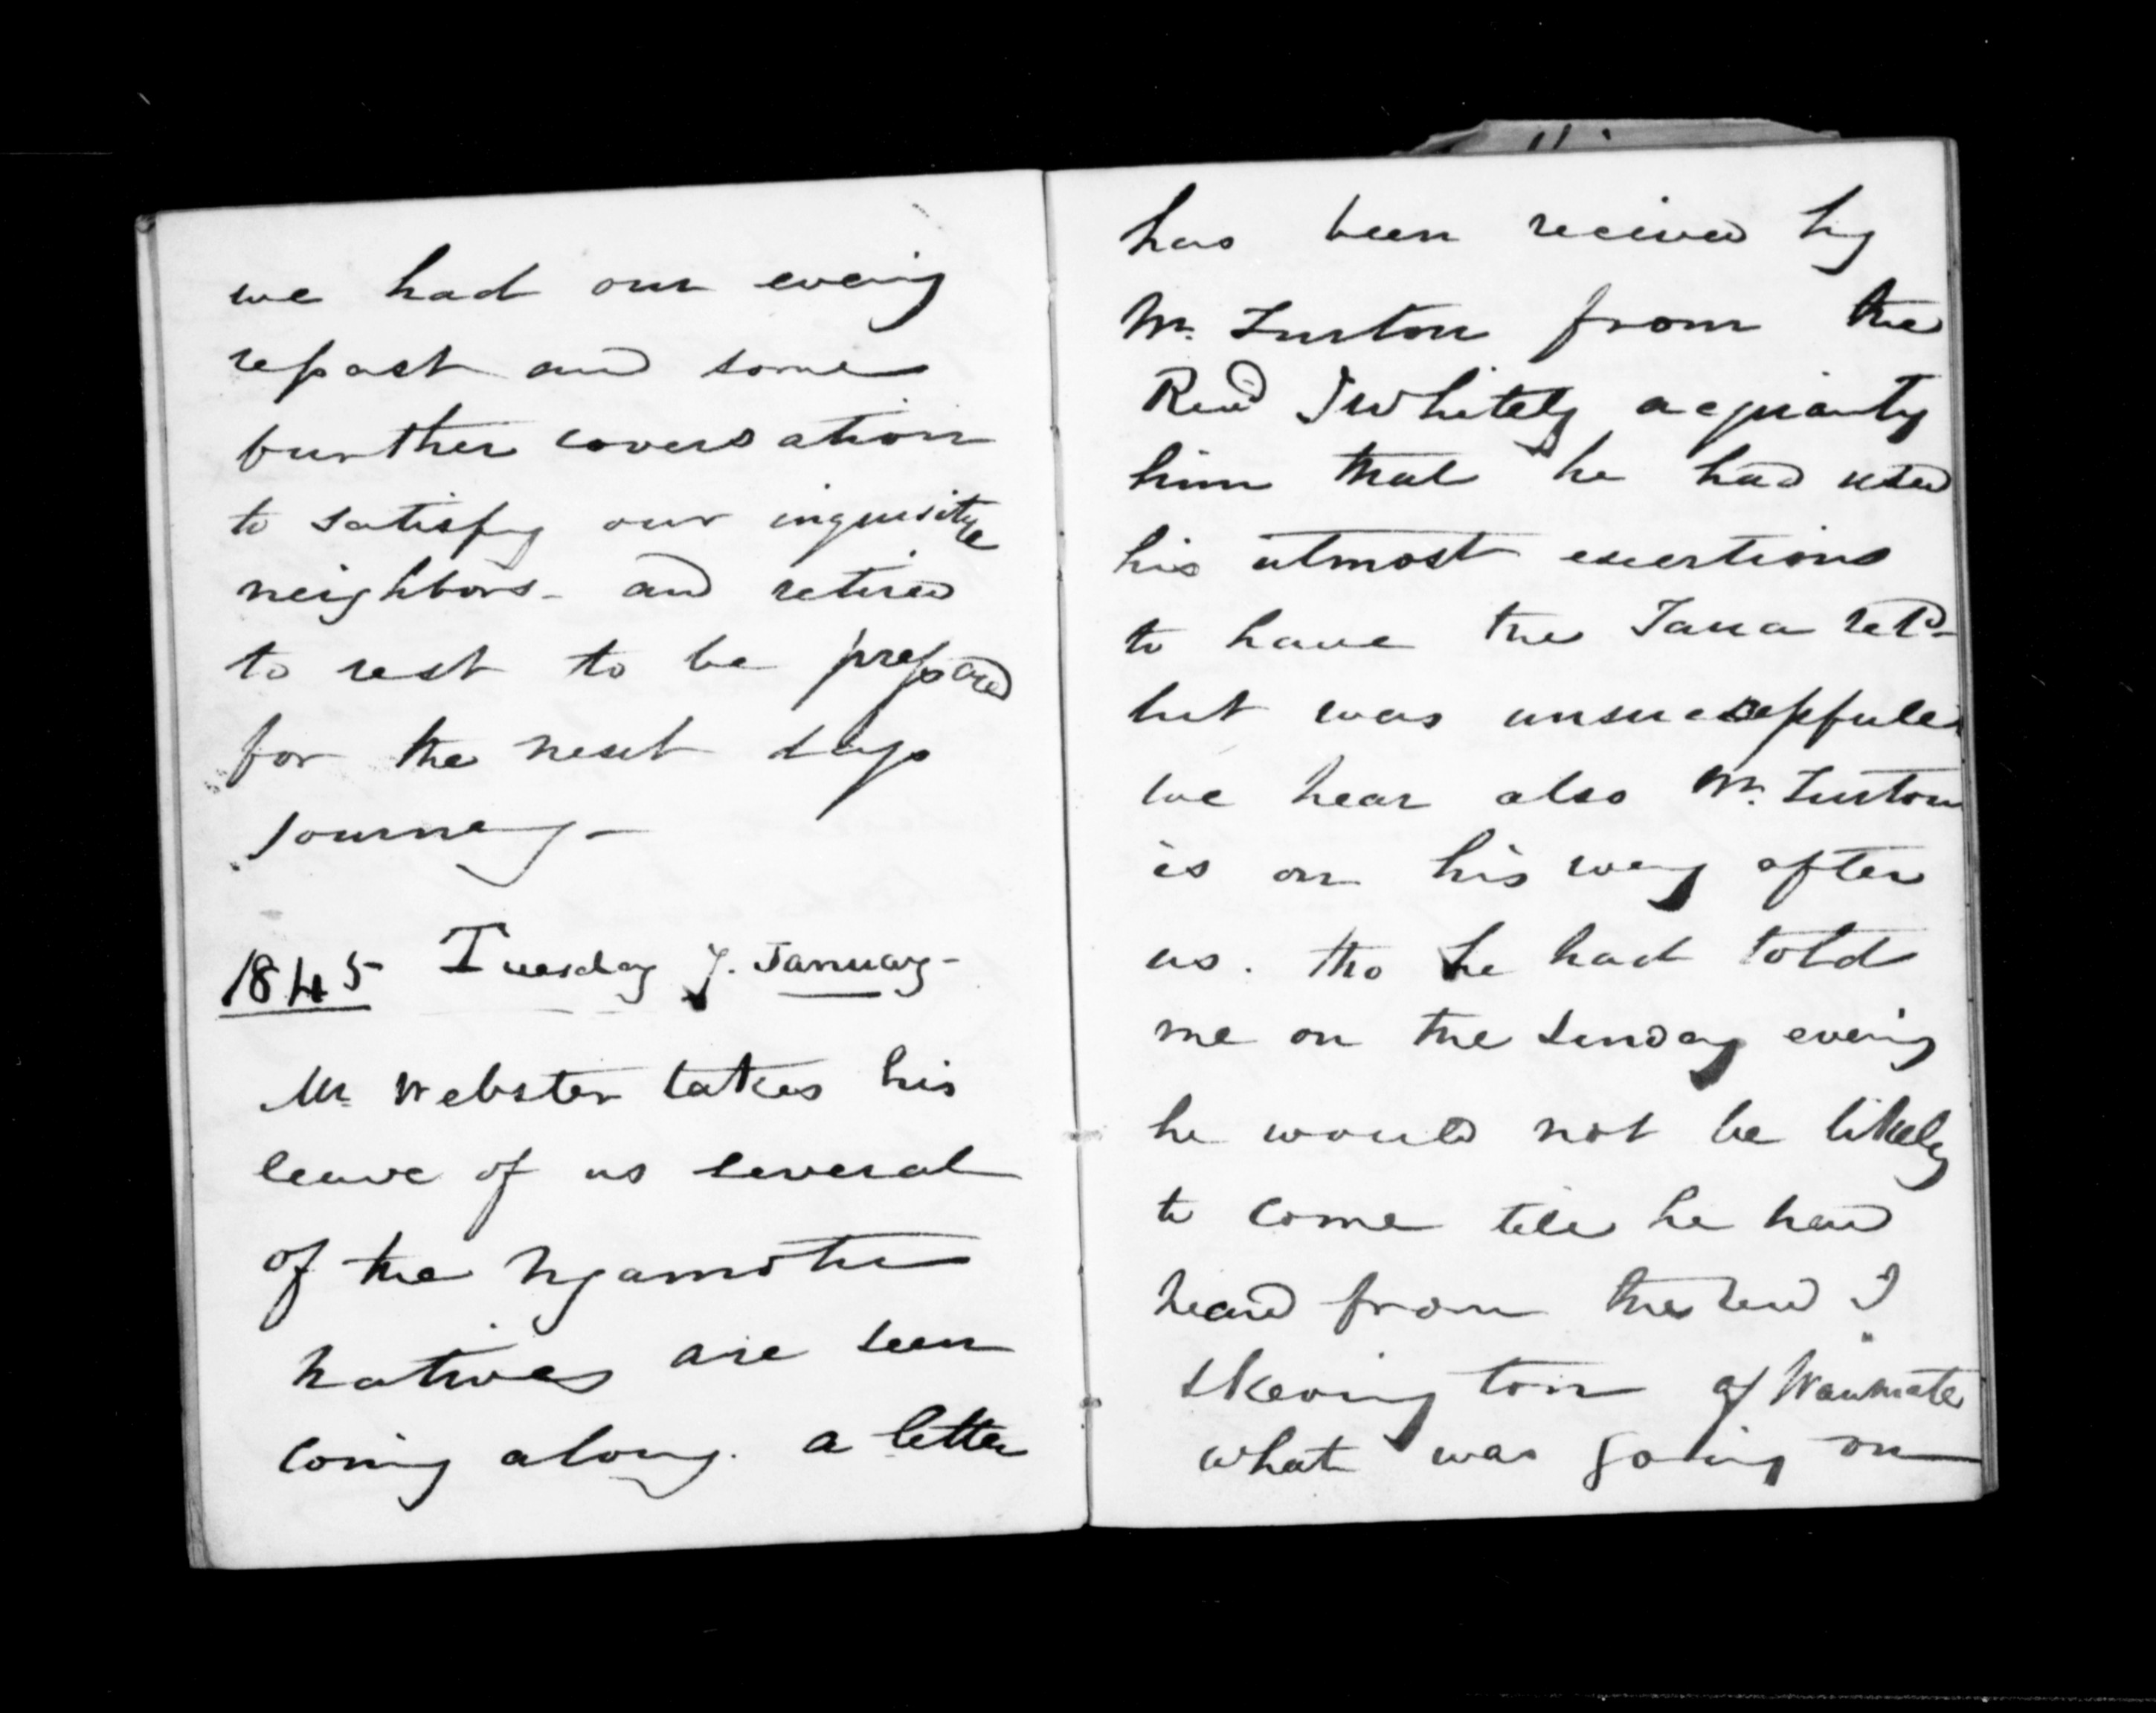 we had our evening
repast and some
further coversation
to satisfy our inquisitve
neighbors - and retired
to rest to be prepared
for the next days
journey -
1845 Tuesday 7. January -
Mr Webster takes his
leave of us several
of the Ngamotu
natives are seen
coming along. a letter
has been recived by
Mr. Turton from the
Revd J Whitely acquainting
him that he had used
his utmost exertions
to have the Taua
but was unsuccessfull
we hear also Mr. Turton
is on his way after
us. tho he had told
me on the Sunday evening
he would not be likely
to come till he had
heard from the Revd I
Skevington of Waimate
what was going on